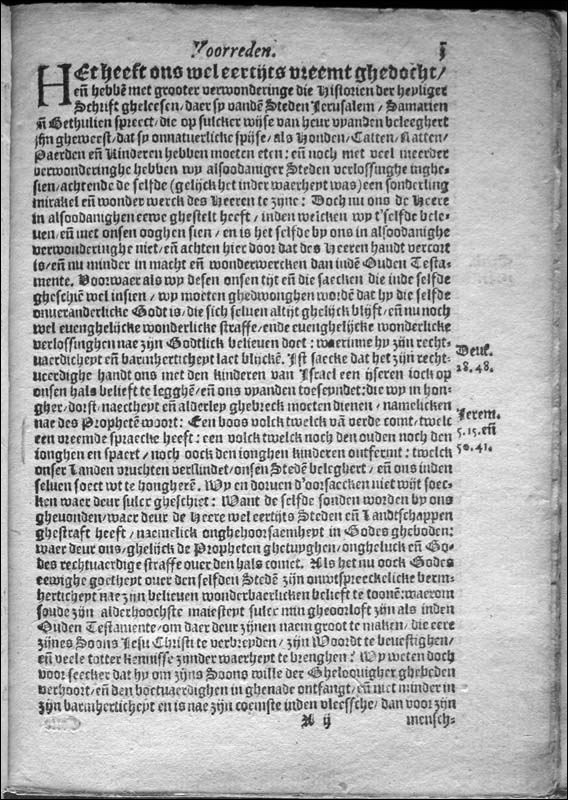 Voorreden.
HEt heeft ons wel eertijts vreemt ghedocht/
eñ hebbē met grooter verwonderinge die Historien der heyliger
Schrift ghelesen/ daer sy vandē Steden Jerusalem/ Samarien
eñ Bethulien spreect/ die op sulcker wijse van heur vyanden beleeghert
zijn gheweest/ dat sy onnatuerlicke spijse/ als Honden/ Catten/ Ratten/
Paerden eñ Kinderen hebben moeten eten: eñ noch met veel meerder
verwonderinghe hebben wy alsoodaniger Steden verlossinghe inghe-
sien/ achtende de selfde (gelijck het inder waerheyt was) een sonderling
mirakel eñ wonder werck des Heeren te zijne: Doch nu ons de Heere
in alsoodanighen eewe ghestelt heeft/ inden welcken wy t'selfde bele-
uen/ eñ met onsen ooghen sien/ en is het selfde by ons in alsoodanighe
verwonderinghe niet/ eñ achten hier door dat des Heeren handt vercort
is/ eñ nu minder in macht eñ wonderwercken dan indē Ouden Testa-
mente. Voorwaer als wy desen onsen tijt eñ die saecken die inde selfde
gheschiē wel insien/ wy moeten ghedwonghen wordē dat by die selfde
onueranderlicke Godt is/ die sich seluen altijt ghelijck blijft/ eñ nu noch
wel euenghelijcke wonderlicke straffe/ ende euenghelijcke wonderlicke
verlossinghen nae zijn Godtlick belieuen doet: waerinne hy zijn recht-
uaerdicheyt eñ barmherticheyt laet blijckē. Ist saecke dat het zijn recht-
ueerdighe handt ons met den kinderen van Israel een ijseren iock op
onsen hals belieft te legghē/ eñ ons vyanden toeseyndet: die wy in hon-
gher/ dorst/ naectheyt eñ alderley ghebreck moeten dienen/ namelicken
nae des Prophetē woort: Een boos volck twelck vā verde comt/ twelc
een vreemde spraecke heeft: een volck twelck noch den ouden noch den
ionghen en spaert/ noch oock den ionghen kinderen ontfermt: twelck
onser Landen vruchten verslindet/ onsen Stedē beleghert/ eñ ons inden
seluen soect wt te hongherē. Wy en doruen d'oorsaecken niet wijt soec-
ken waer deur sulcx gheschiet: Want de selfde sonden worden by ons
gheuonden/ waer deur de Heere wel eertijts Steden eñ Landtschappen
ghestraft heeft/ naemelick onghehoorsaemheyt in Godes gheboden:
waer deur ons/ ghelijck de Propheten ghetuyghen/ ongheluck eñ Go-
des rechtuaerdige straffe ouer den hals comet. Als het nu oock Godes
eewighe goetheyt ouer den selfden Stedē zijn onwtspreeckelicke berm-
herticheyt nae zijn belieuen wonderbaerlicken belieft te toonē: waerom
soude zijn alderhoochste maiesteyt sulcx min gheoorloft zijn als inden
Ouden Testamente/ om daer deur zijnen naem groot te maken/ die eere
zijnes Soons Jesu Christi te verbreyden/ zijn Woordt te beuestighen/
eñ veele totter kennisse zijnder waerheyt te brenghen? Wy weten doch
voor seecker dat hy om zijns Soons wille der Ghelooviigher ghebeden
verhoort/ eñ den boetuaerdighen in ghenade ontfangt/ eñ niet minder in
zijn barmherticheyt en is nae zijn coemste inden vleessche/ dan voor zijn
A ij mensch-
Deut.
28. 48.
Jerem.
5. 15. eñ
50. 41.